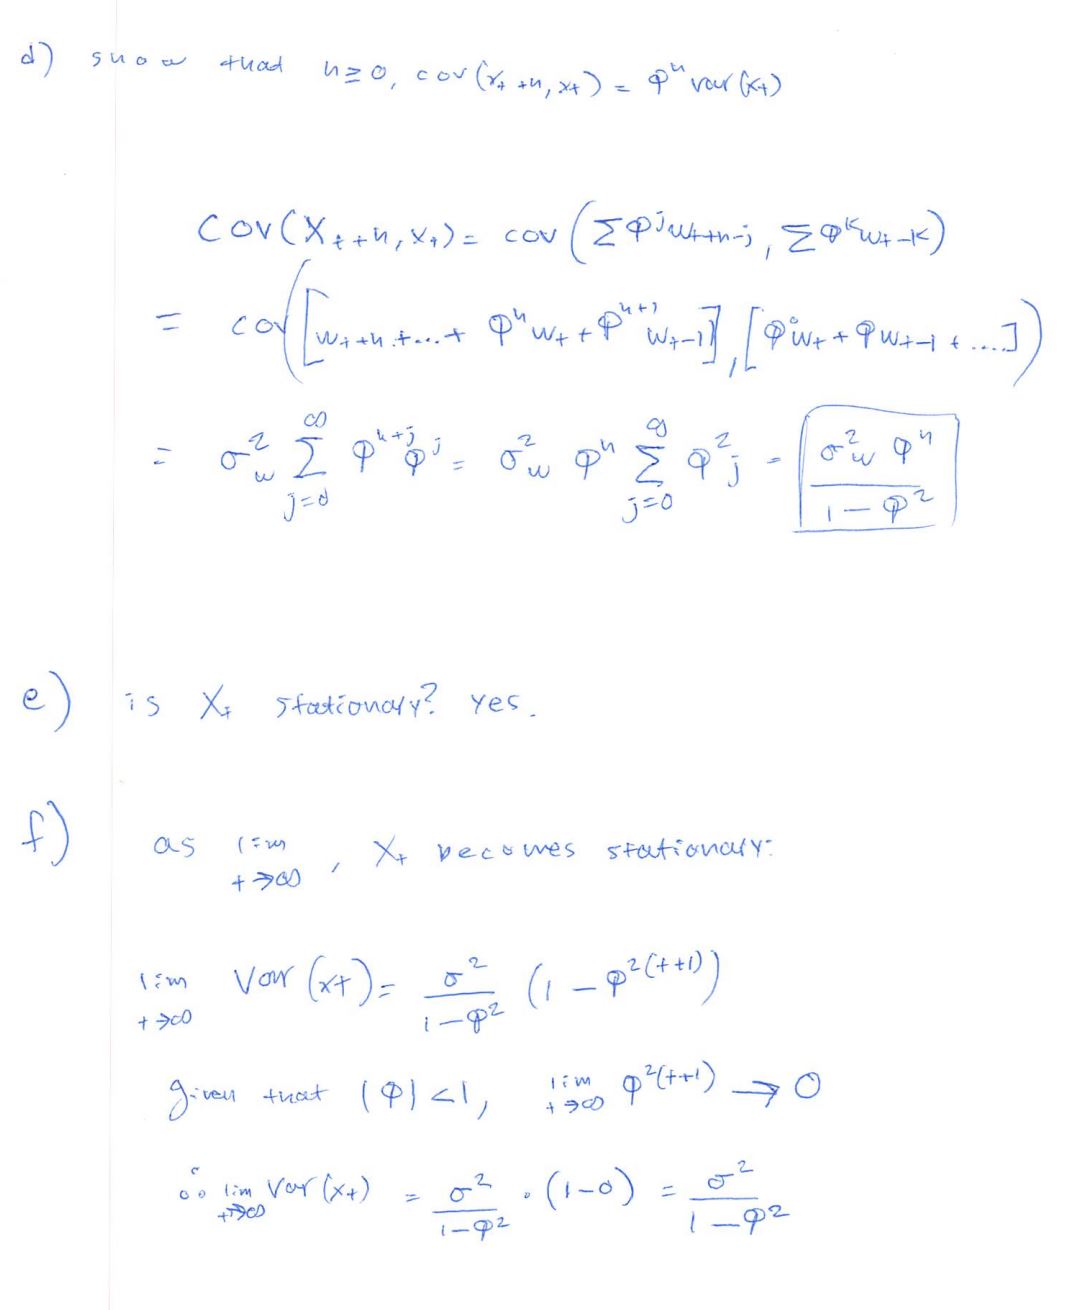 d) show that h≥0, cov(x_t+h, x_t) = φ^h var(x_t)
cov(X_t+h, X_t) = cov(Σφ^j w_t+h-j, Σφ^k w_t-k)
= cov([w_t+h + ... + φ^h w_t + φ^h+1 w_t-1], [φ^0 w_t + φ w_t-1 + ....])
= σ_w^2 Σ_{j=0}^∞ φ^{h+j} φ^j = σ_w^2 φ^h Σ_{j=0}^∞ φ^2j = σ_w^2 φ^h / (1-φ^2)
e) is X_t stationary? yes.
f) as lim t→∞, X_t becomes stationary:
lim t→∞ Var(x_t) = σ^2/(1-φ^2) (1-φ^{2(t+1)})
given that |φ|<1, lim t→∞ φ^{2(t+1)} → 0
∴ lim t→∞ Var(x_t) = σ^2/(1-φ^2) · (1-0) = σ^2/(1-φ^2)